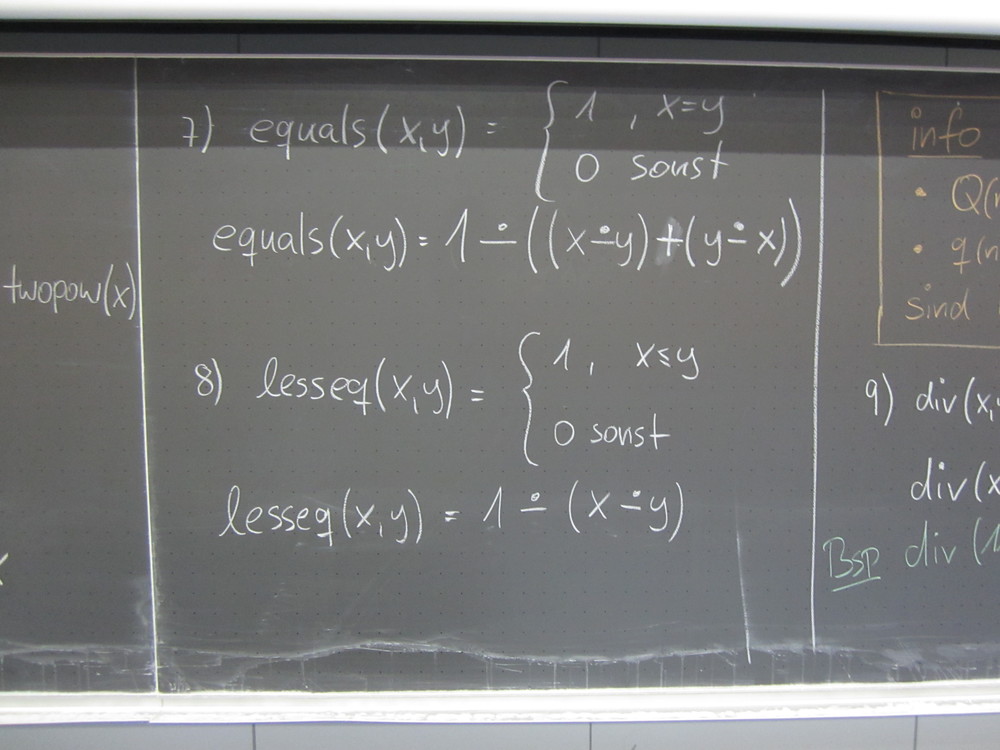 twopow(x)
7) equals(x,y) = { 1 , x=y
0 sonst
equals(x,y) = 1 ∸ ((x ∸ y) + (y ∸ x))
8) lesseq(x,y) = { 1, x≤y
0 sonst
lesseq(x,y) = 1 ∸ (x ∸ y)
info
• Q(
• q(
sind
9) div(x,
div(x
Bsp div (1